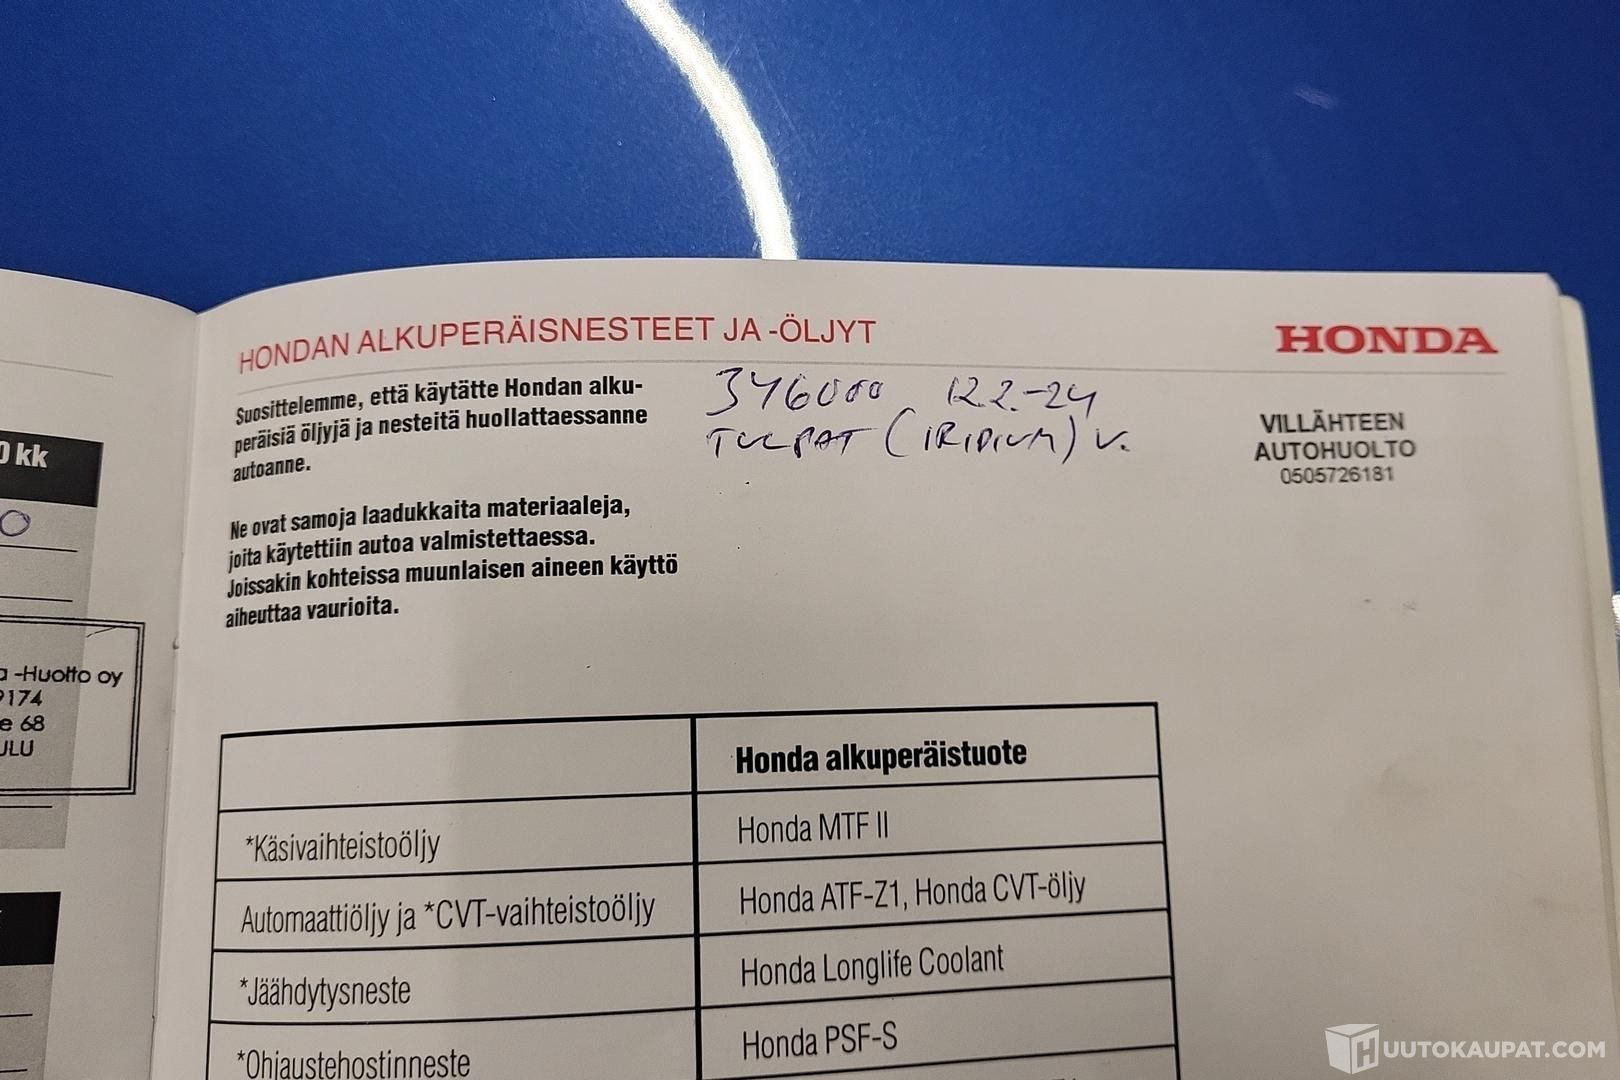 HONDAN ALKUPERÄISNESTEET JA -ÖLJYT
HONDA
Suosittelemme, että käytätte Hondan alku-
peräisiä öljyjä ja nesteitä huollattaessanne
autoanne.
346000 12.2.-24
TULPAT (IRIDIUM) V.
VILLÄHTEEN
AUTOHUOLTO
0505726181
Ne ovat samoja laadukkaita materiaaleja,
joita käytettiin autoa valmistettaessa.
Joissakin kohteissa muunlaisen aineen käyttö
aiheuttaa vaurioita.
0 kk
-Huolto oy
9174
e 68
ULU
Honda alkuperäistuote
*Käsivaihteistoöljy Honda MTF II
Automaattiöljy ja *CVT-vaihteistoöljy Honda ATF-Z1, Honda CVT-öljy
*Jäähdytysneste Honda Longlife Coolant
*Ohjaustehostinneste Honda PSF-S
HUUTOKAUPAT.COM